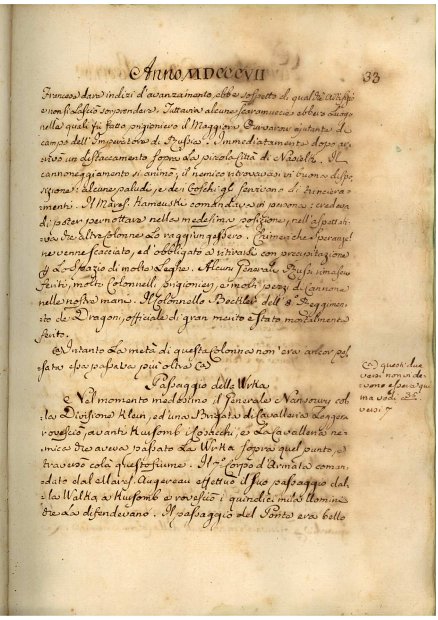 Anno MDCCCVII
33
Francese dare indizi d'avanzamento, ebbe sospetto di qualche
e non si lasciò sorprendere. Tuttavia alcune scaramuccie ebbero luogo
nelle quali fu fatto prigioniero il Maggiore ajutante di
campo dell'Imperatore di Russia. Immediatamente dopo ar-
rivò un distaccamento sopra la picola Città di Il
cannoneggiamento si animò; il nemico ritrovavasi in buona dispo-
sizione; alcune paludi, e dei Boschi gli servivano di trinciera-
menti. Il Maresc. Kamenski comandava in persona; credeva
di poter pernottare nella medesima posizione, nell'aspettati-
va che altre colonne lo raggiungessero. Chimeriche speranze!
ne venne scacciato, ed obbligato a ritirarsi con precipitazione
p lo spazio di molte Leghe. Alcuni Generali Russi rimasero
feriti, molti Colonnelli prigionieri, e molti pezzi di Cannone
nelle nostre mani. Il Colonnello Beckler dell'8.° Reggimen-
to de Dragoni, officiale di gran merito è stato mortalmente
ferito.
(a) Intanto la metà di questa Colonna non era ancor pas-
sata e passava più oltre (a)
(a) questi due
versi non si de-
vono
ma vedi c. 35
versi 7
Passaggio della Wrka
Nel momento medesimo il Generale Nansouty col-
la Divisione Klein, ed una Brigata di Cavalleria Leggera
rovesciò, avanti Kursomb i Cosacchi, e la Cavalleria ne-
mica che aveva passato la Wrka sopra quel punto, e
traversò colà questo fiume. Il 7.° Corpo d'Armata coman-
dato dal Maresc. Augereau effettuò il suo passaggio dal-
la Walka a Kursomb e rovesciò i quindici mila Uomini
che la difendevano. Il passaggio del Ponte era bello